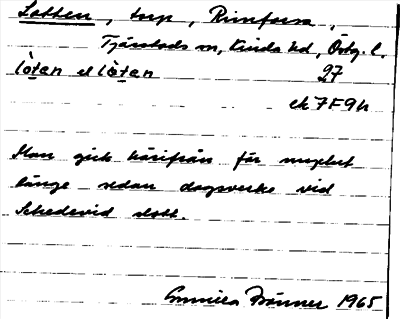 Lotten, torp, Rimforsa,
Tjärstads sn, Kinda hd, Östg. l.
lòten el lòten 27
ek 7F9h
Man gick härifrån för mycket
länge sedan dagsverke vid
Schedevid slott.
Gunnica Brönner 1965